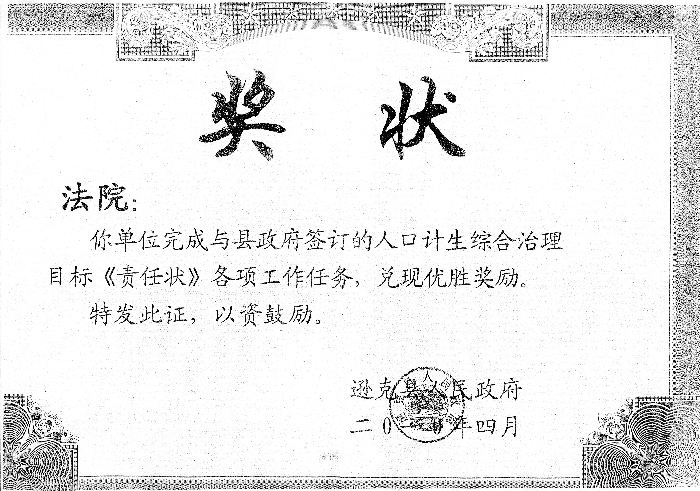 奖 状
法院：
你单位完成与县政府签订的人口计生综合治理
目标《责任状》各项工作任务，兑现优胜奖励。
特发此证，以资鼓励。
逊克县人民政府
二0一0年四月